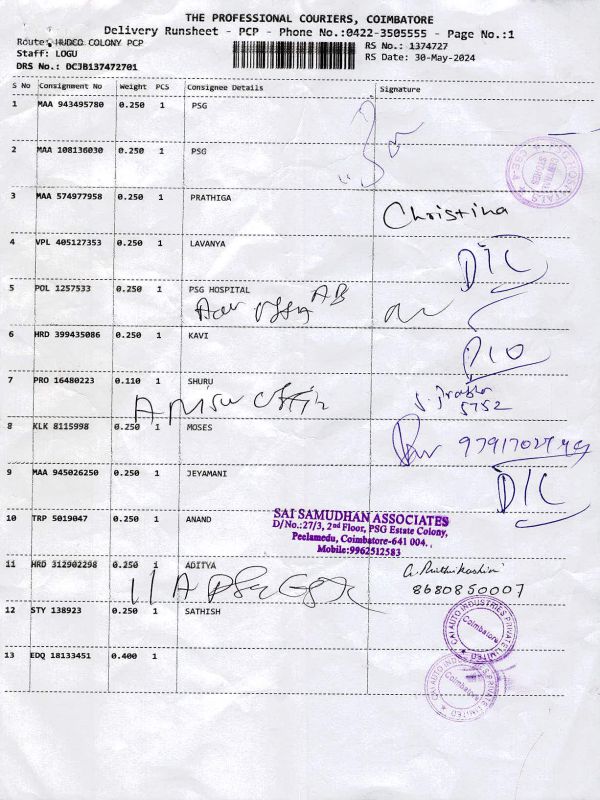 THE PROFESSIONAL COURIERS, COIMBATORE
Delivery Runsheet - PCP - Phone No.:0422-3505555 - Page No.:1
Route: HUDCO COLONY PCP
RS No.: 1374727
Staff: LOGU
RS Date: 30-May-2024
DRS No.: DCJB137472701
S No Consignment No Weight PCS Consignee Details Signature
1 MAA 943495780 0.250 1 PSG
2 MAA 108136030 0.250 1 PSG
3 MAA 574977958 0.250 1 PRATHIGA
Christina
4 VPL 405127353 0.250 1 LAVANYA
D/C
5 POL 1257533 0.250 1 PSG HOSPITAL
6 HRD 399435086 0.250 1 KAVI
7 PRO 16480223 0.110 1 SHURU
5752
8 KLK 8115998 0.250 1 MOSES
9 MAA 945026250 0.250 1 JEYAMANI
D/C
10 TRP 5019047 0.250 1 ANAND
SAI SAMUDHAN ASSOCIATES
D/No.:27/3, 2nd Floor, PSG Estate Colony,
Peelamedu, Coimbatore-641 004.
Mobile:9962512583
11 HRD 312902298 0.250 1 ADITYA
8680850007
12 STY 138923 0.250 1 SATHISH
CAI AUTO INDUSTRIES PRIVATE LIMITED
Coimbatore
13 EDQ 18133451 0.400 1
CAI AUTO INDUSTRIES PRIVATE LIMITED
Coimbatore